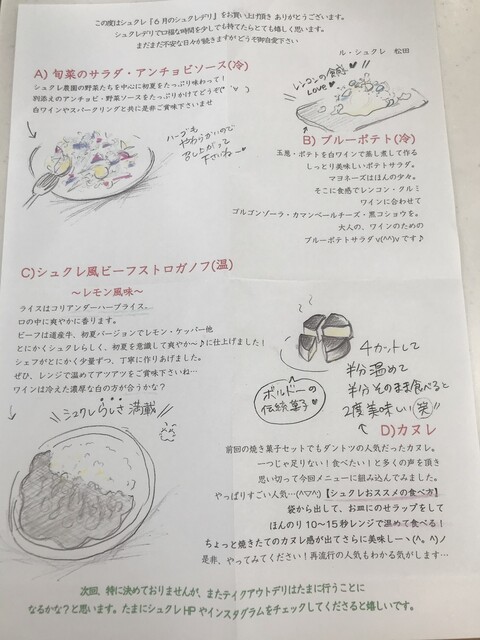 この度はシュクレ『6月のシュクレデリ』をお買い上げ頂き ありがとうございます。
シュクレデリで口福な時間を少しでも持てたらとても嬉しく思います。
まだまだ不安な日々が続きますが どうぞ御自愛下さい
ル・シュクレ 松田
A) 旬菜のサラダ・アンチョビソース(冷)
シュクレ農園の野菜たちを中心に初夏をたっぷり味わって！
別添えのアンチョビ・野菜ソースをたっぷりかけてどうぞ(*´▽`)
白ワインやスパークリングと共に是非ご賞味下さいませ
ハーブも
やわらかいので
召し上がって
下さいねー♡
レンコンの食感
LOVE♥
B) ブルーポテト(冷)
玉葱・ポテトを白ワインで蒸し煮して作る
しっとり美味しいポテトサラダ。
マヨネーズはほんの少々。
そこに食感でレンコン・クルミ
ワインに合わせて
ゴルゴンゾーラ・カマンベールチーズ・黒コショウを。
大人の、ワインのための
ブルーポテトサラダv(^^)vです♪
C)シュクレ風ビーフストロガノフ(温)
～レモン風味～
ライスはコリアンダーハーブライス。
口の中に爽やかに香ります。
ビーフは道産牛、初夏バージョンでレモン・ケッパー他
とにかくシュクレらしく、初夏を意識して爽やか～♪に仕上げました！
シェフがとにかく少量ずつ、丁寧に作りあげました。
ぜひ、レンジで温めてアツアツをご賞味下さいね…
ワインは冷えた濃厚な白の方が合うかな？
シュクレらしさ満載
ボルドーの
伝統菓子♥
4カットして
半分温めて
半分そのまま食べると
2度美味しい(笑)"
D)カヌレ
前回の焼き菓子セットでもダントツの人気だったカヌレ。
一つじゃ足りない！食べたい！と多くの声を頂き
思い切って今回メニューに組み込んでみました。
やっぱりすごい人気…(^▽^;)【シュクレおススメの食べ方】
袋から出して、お皿にのせラップをして
ほんのり 10～15秒レンジで温めて食べる！
ちょっと焼きたてのカヌレ感が出てさらに美味しーヽ(^。^)ノ
是非、やってみてください！再流行の人気もわかる気がします…
次回、特に決めておりませんが、またテイクアウトデリはたまに行うことに
なるかな？と思います。たまにシュクレHPやインスタグラムをチェックしてくださると嬉しいです。